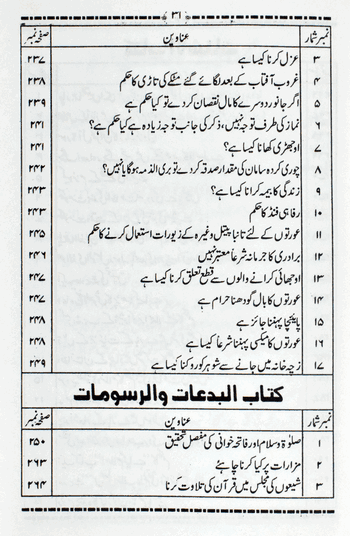 ۳۱
نمبر شمار عناوین صفحہ نمبر
۳ عزل کرنا کیسا ہے ۲۳۷
۴ غروب آفتاب کے بعد لگائے گئے مٹکے کی تاڑی کا حکم ۲۳۸
۵ اگر جانور دوسرے کا مال نقصان کردے تو کیا حکم ہے ۲۳۹
۶ نماز کی طرف توجہ نہیں، ذکر کی جانب توجہ زیادہ ہے کیا حکم ہے؟ ۲۴۱
۷ اوجھڑی کھانا کیسا ہے؟ ۲۴۱
۸ چوری کردہ سامان کی مقدار صدقہ کردے تو بری الذمہ ہوگا یا نہیں؟ ۲۴۲
۹ زندگی کا بیمہ کرانا کیسا ہے؟ ۲۴۳
۱۰ رفاہی فنڈ کا حکم ۲۴۳
۱۱ عورتوں کے لئے تانبا پیتل وغیرہ کے زیورات استعمال کرنے کا حکم ۲۴۵
۱۲ برادری کا جرمانہ شرعاً معتبر نہیں ۲۴۶
۱۳ اوجھائی کرانے والوں سے قطع تعلق کرنا کیسا ہے ۲۴۷
۱۴ عورتوں کا بال گودھنا حرام ہے ۲۴۷
۱۵ پائیجا پہننا جائز ہے ۲۴۸
۱۶ عورتوں کا میکسی پہننا شرعاً کیسا ہے ۲۴۸
۱۷ زچہ خانہ میں جانے سے شوہر کو روکنا کیسا ہے ۲۴۹
کتاب البدعات والرسومات
نمبر شمار عناوین صفحہ نمبر
۱ صلوٰۃ وسلام اور فاتحہ خوانی کی مفصل تحقیق ۲۵۰
۲ مزارات پر کیا کرنا چاہئے ۲۶۳
۳ شیعوں کی مجلس میں قرآن کی تلاوت کرنا ۲۶۴